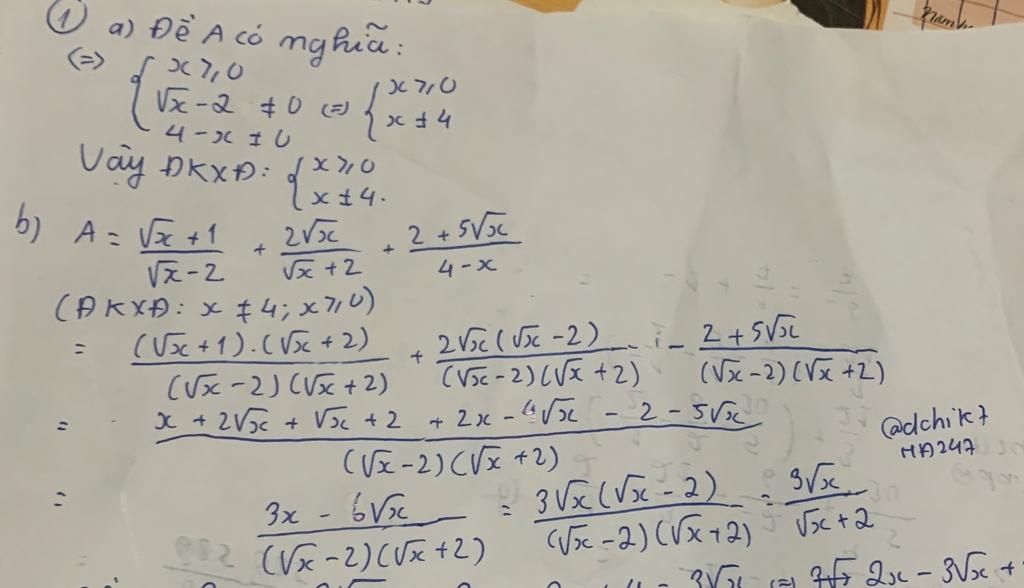 ① a) Để A có nghĩa:
(=) { x ≥ 0
√x - 2 ≠ 0 (=) { x ≥ 0
4 - x ≠ 0 x ≠ 4
Vậy ĐKXĐ: { x ≥ 0
x ≠ 4.
b) A = (√x + 1)/(√x - 2) + (2√x)/(√x + 2) + (2 + 5√x)/(4 - x)
(ĐKXĐ: x ≠ 4; x ≥ 0)
= ((√x + 1).(√x + 2))/((√x - 2)(√x + 2)) + (2√x(√x - 2))/((√x - 2)(√x + 2)) - (2 + 5√x)/((√x - 2)(√x + 2))
= (x + 2√x + √x + 2 + 2x - 4√x - 2 - 5√x)/((√x - 2)(√x + 2))
@dchik7
MA247
= (3x - 6√x)/((√x - 2)(√x + 2)) = (3√x(√x - 2))/((√x - 2)(√x + 2)) = (3√x)/(√x + 2)
2x - 3√x +